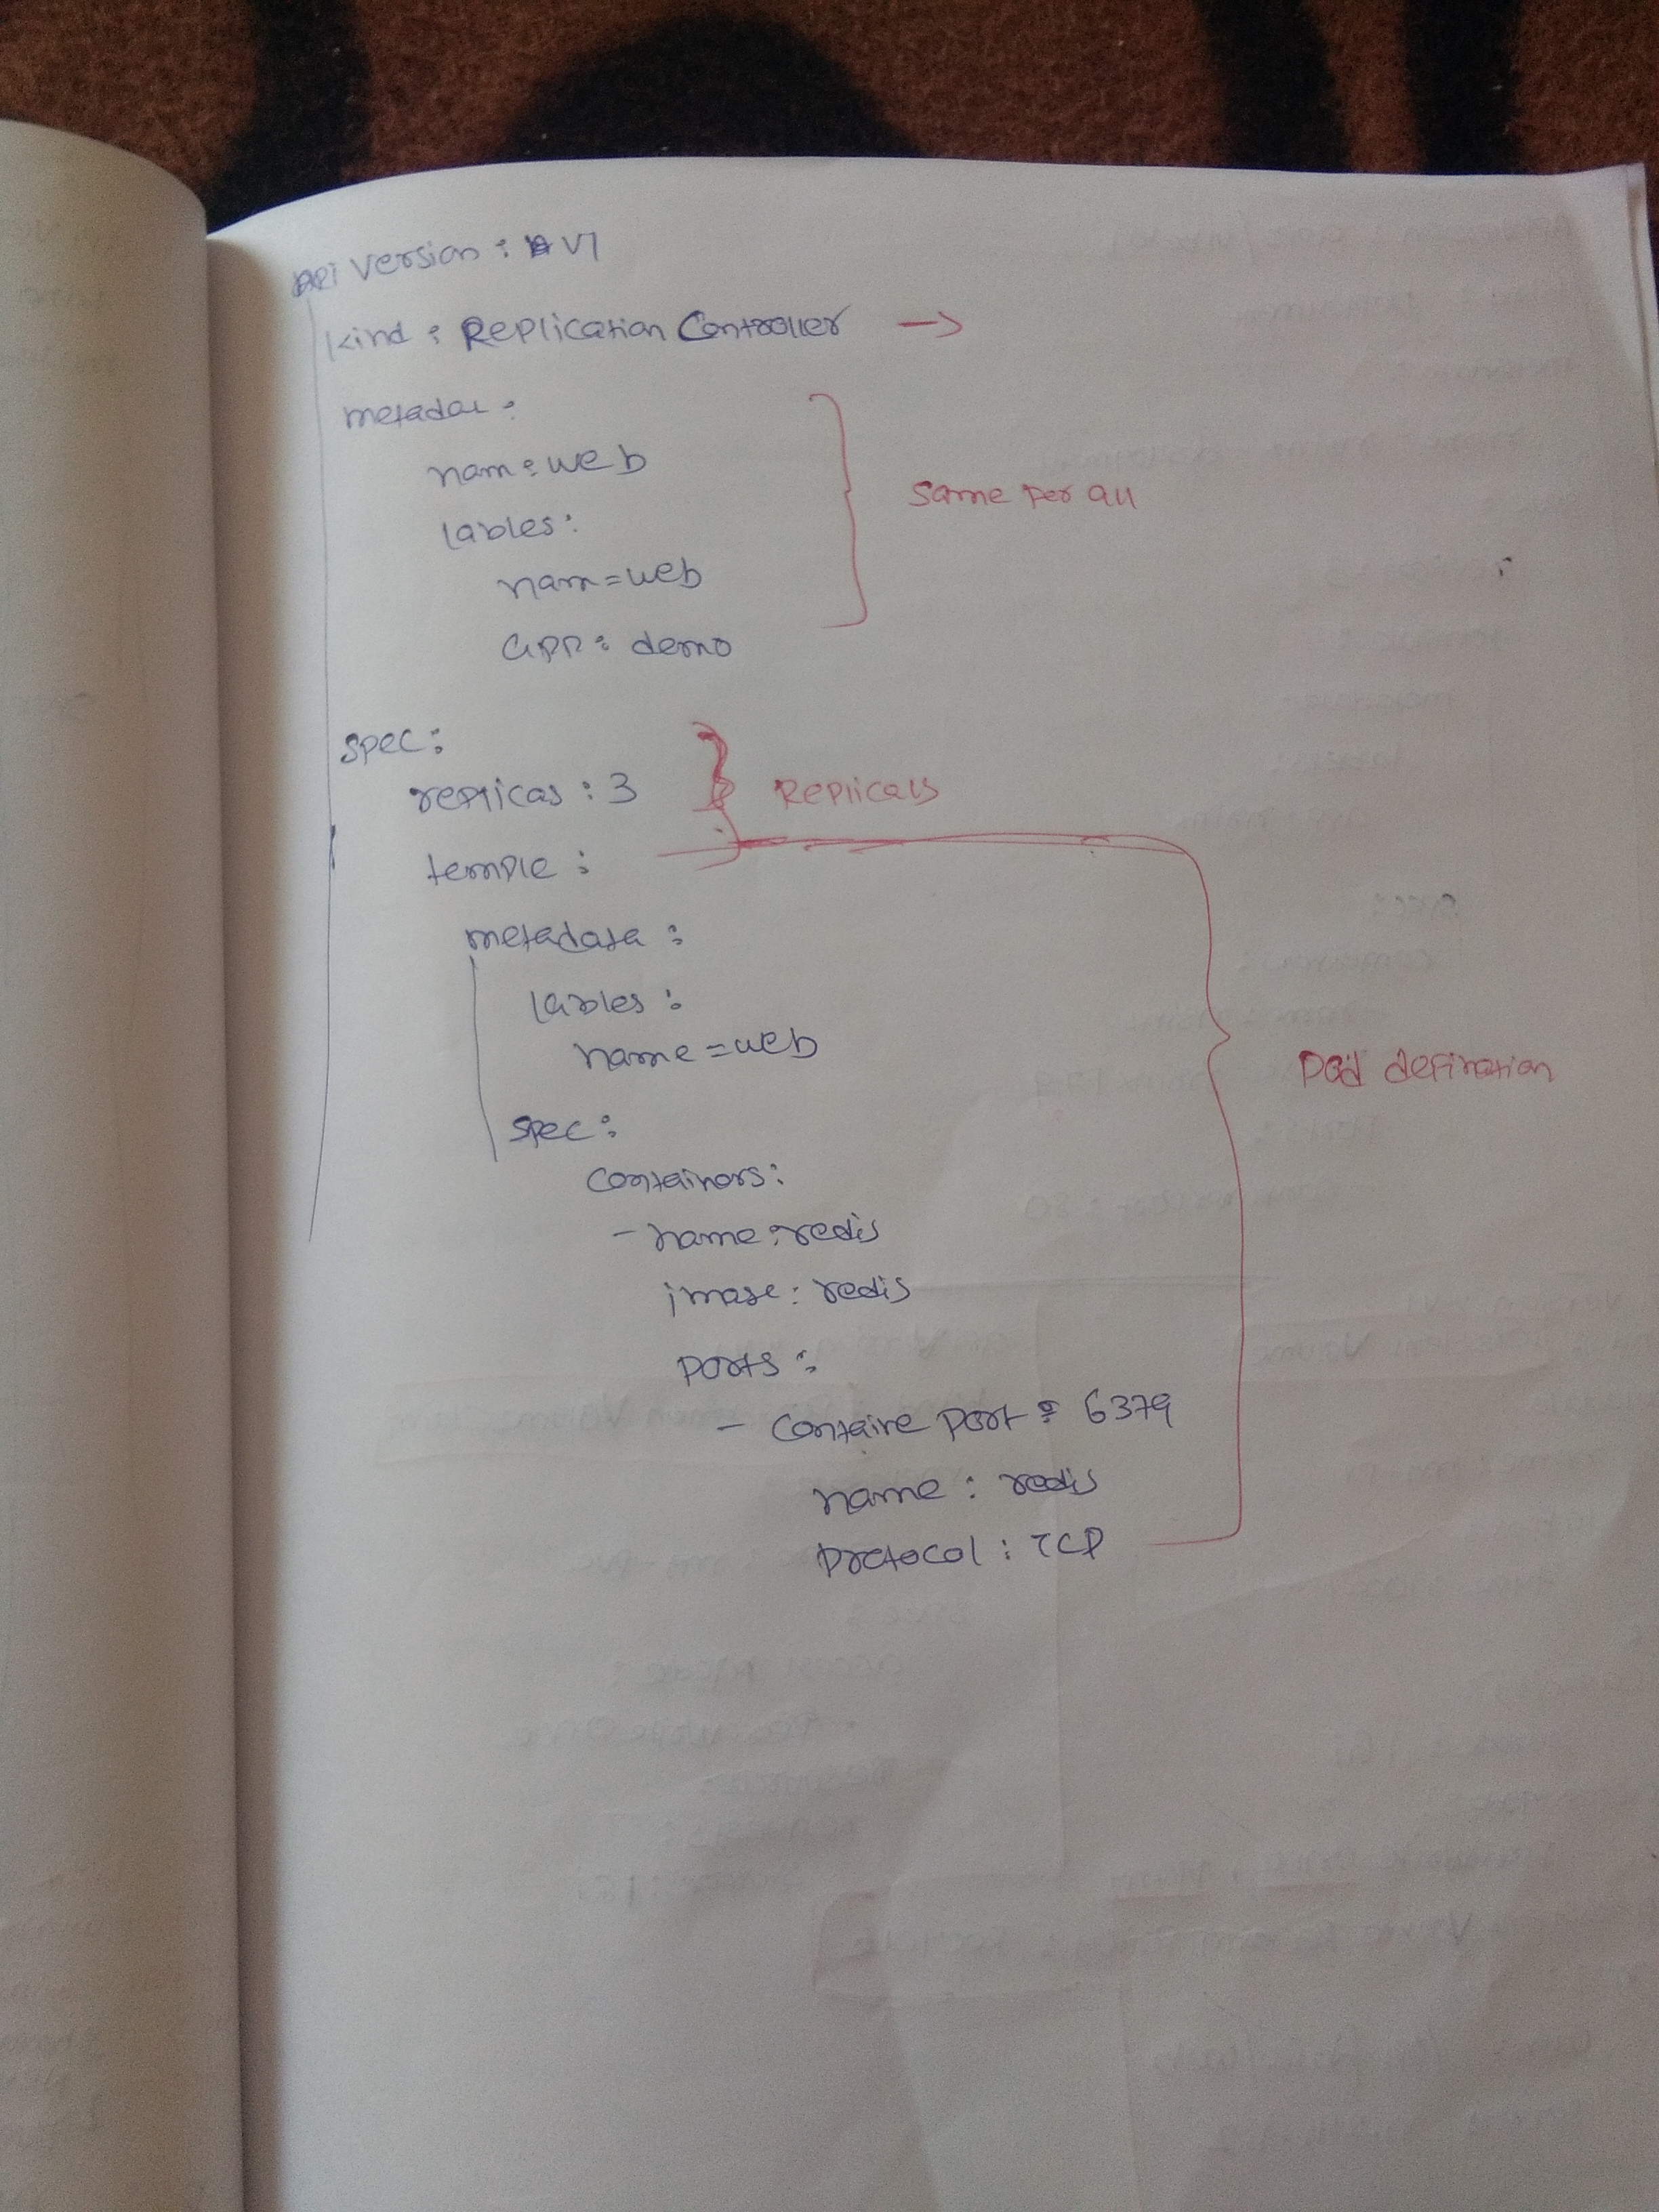 api version : v1
kind : Replication Controller →
metadat :
nam : web
lables :
nam = web
same per all
app : demo
spec :
replicas : 3
Replicals
temple :
metadata :
lables :
name = web
pod defination
spec :
containors :
- name : redis
image : redis
ports :
- containe port : 6379
name : redis
protocol : TCP